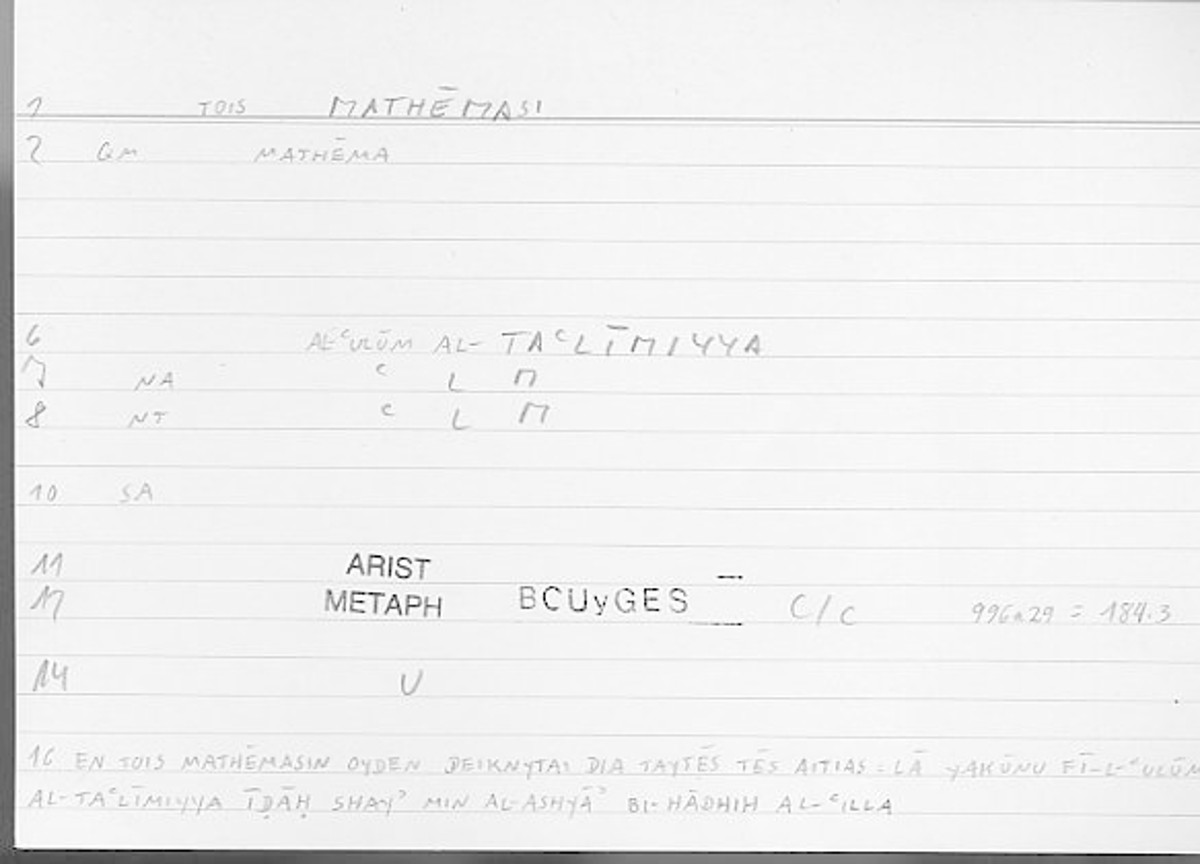 1 TOIS MATHĒMASI
2 QM MATHĒMA
6 AL-ʿULŪM AL-TAʿLĪMIYYA
7 NA ʿ L M
8 NT ʿ L M
10 SA
11 ARIST
12 METAPH BCUyGES C/C 996a29 = 184.3
14 U
16 EN TOIS MATHĒMASIN OYDEN DEIKNYTAI DIA TAYTĒS TĒS AITIAS = LĀ YAKŪNU FĪ-L-ʿULŪM
AL-TAʿLĪMIYYA ĪḌĀḤ SHAYʾ MIN AL-ASHYĀʾ BI-HĀDHIH AL-ʿILLA